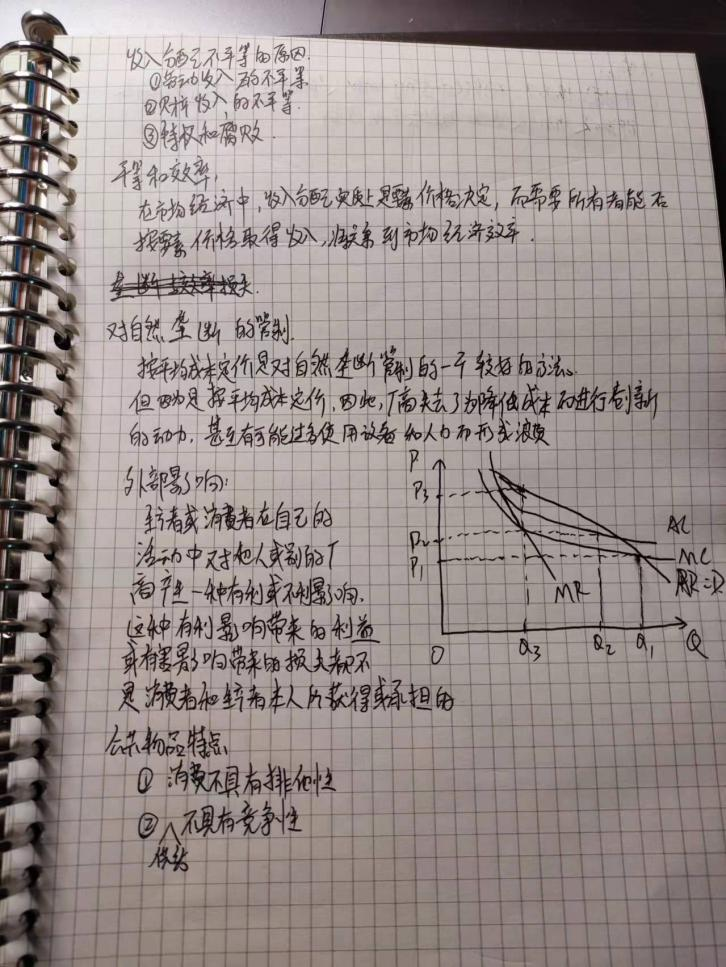 收入分配不平等的原因.
①劳动收入的不平等
②财产收入的不平等.
③特权和腐败.
平等和效率,
在市场经济中,收入分配实质上是要素价格决定,而需要所有者能否
按要素价格取得收入,将关系到市场经济效率.
垄断与效率损失.
对自然垄断的管制.
按平均成本定价是对自然垄断管制的一个较好的方法。
但因为是按平均成本定价,因此,厂商失去了为降低成本而进行创新
的动力,甚至有可能过多使用设备和人力而形成浪费
外部影响:
生产者或消费者在自己的
活动中对他人或别的厂
商产生一种有利或不利影响.
这种有利影响带来的利益
或有害影响带来的损失都不
是消费者和生产者本人所获得或承担的
P
P3
P2
P1
AC
MC
MR
AR=D
O
Q3
Q2
Q1
Q
公共物品特点
① 消费不具有排他性
② 不具有竞争性
供给